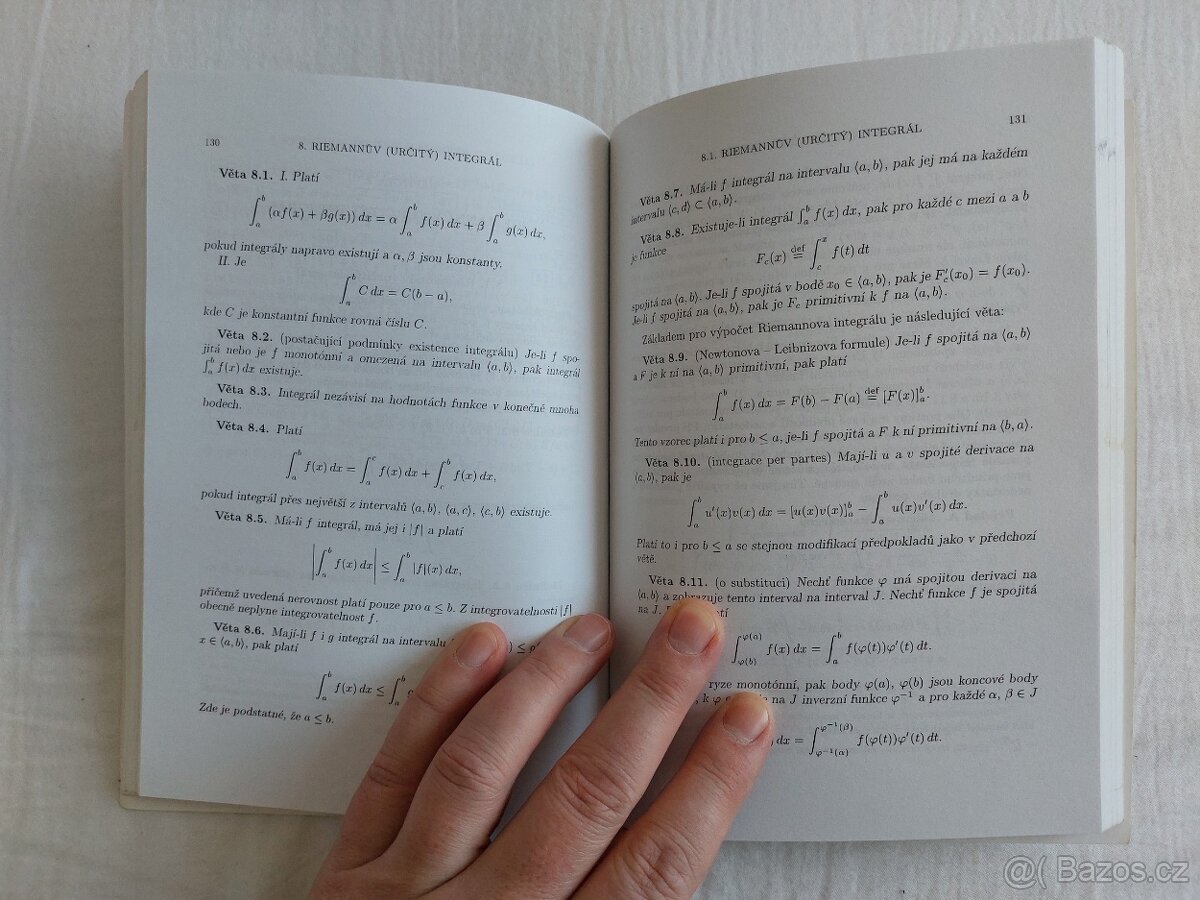 130
8. RIEMANNŮV (URČITÝ) INTEGRÁL
Věta 8.1. I. Platí
∫_a^b (αf(x) + βg(x)) dx = α ∫_a^b f(x) dx + β ∫_a^b g(x) dx,
pokud integrály napravo existují a α, β jsou konstanty.
II. Je
∫_a^b C dx = C(b − a),
kde C je konstantní funkce rovná číslu C.
Věta 8.2. (postačující podmínky existence integrálu) Je-li f spo-
jitá nebo je f monotónní a omezená na intervalu ⟨a, b⟩, pak integrál
∫_a^b f(x) dx existuje.
Věta 8.3. Integrál nezávisí na hodnotách funkce v konečně mnoha
bodech.
Věta 8.4. Platí
∫_a^b f(x) dx = ∫_a^c f(x) dx + ∫_c^b f(x) dx,
pokud integrál přes největší z intervalů ⟨a, b⟩, ⟨a, c⟩, ⟨c, b⟩ existuje.
Věta 8.5. Má-li f integrál, má jej i |f| a platí
|∫_a^b f(x) dx| ≤ ∫_a^b |f|(x) dx,
přičemž uvedená nerovnost platí pouze pro a ≤ b. Z integrovatelnosti |f|
obecně neplyne integrovatelnost f.
Věta 8.6. Mají-li f i g integrál na intervalu
x ∈ ⟨a, b⟩, pak platí
∫_a^b f(x) dx ≤ ∫_a^b
Zde je podstatné, že a ≤ b.
8.1. RIEMANNŮV (URČITÝ) INTEGRÁL
131
Věta 8.7. Má-li f integrál na intervalu ⟨a, b⟩, pak jej má na každém
intervalu ⟨c, d⟩ ⊂ ⟨a, b⟩.
Věta 8.8. Existuje-li integrál ∫_a^b f(x) dx, pak pro každé c mezi a a b
je funkce
F_c(x) ≝ ∫_c^x f(t) dt
spojitá na ⟨a, b⟩. Je-li f spojitá v bodě x₀ ∈ ⟨a, b⟩, pak je F_c′(x₀) = f(x₀).
Je-li f spojitá na ⟨a, b⟩, pak je F_c primitivní k f na ⟨a, b⟩.
Základem pro výpočet Riemannova integrálu je následující věta:
Věta 8.9. (Newtonova – Leibnizova formule) Je-li f spojitá na ⟨a, b⟩
a F je k ní na ⟨a, b⟩ primitivní, pak platí
∫_a^b f(x) dx = F(b) − F(a) ≝ [F(x)]_a^b.
Tento vzorec platí i pro b ≤ a, je-li f spojitá a F k ní primitivní na ⟨b, a⟩.
Věta 8.10. (integrace per partes) Mají-li u a v spojité derivace na
⟨a, b⟩, pak je
∫_a^b u′(x)v(x) dx = [u(x)v(x)]_a^b − ∫_a^b u(x)v′(x) dx.
Platí to i pro b ≤ a se stejnou modifikací předpokladů jako v předchozí
větě.
Věta 8.11. (o substituci) Nechť funkce φ má spojitou derivaci na
⟨a, b⟩ a zobrazuje tento interval na interval J. Nechť funkce f je spojitá
na J.
∫_{φ(b)}^{φ(a)} f(x) dx = ∫_a^b f(φ(t))φ′(t) dt.
ryze monotónní, pak body φ(a), φ(b) jsou koncové body
k φ na J inverzní funkce φ⁻¹ a pro každé α, β ∈ J
dx = ∫_{φ⁻¹(α)}^{φ⁻¹(β)} f(φ(t))φ′(t) dt.
@( Bazos.cz